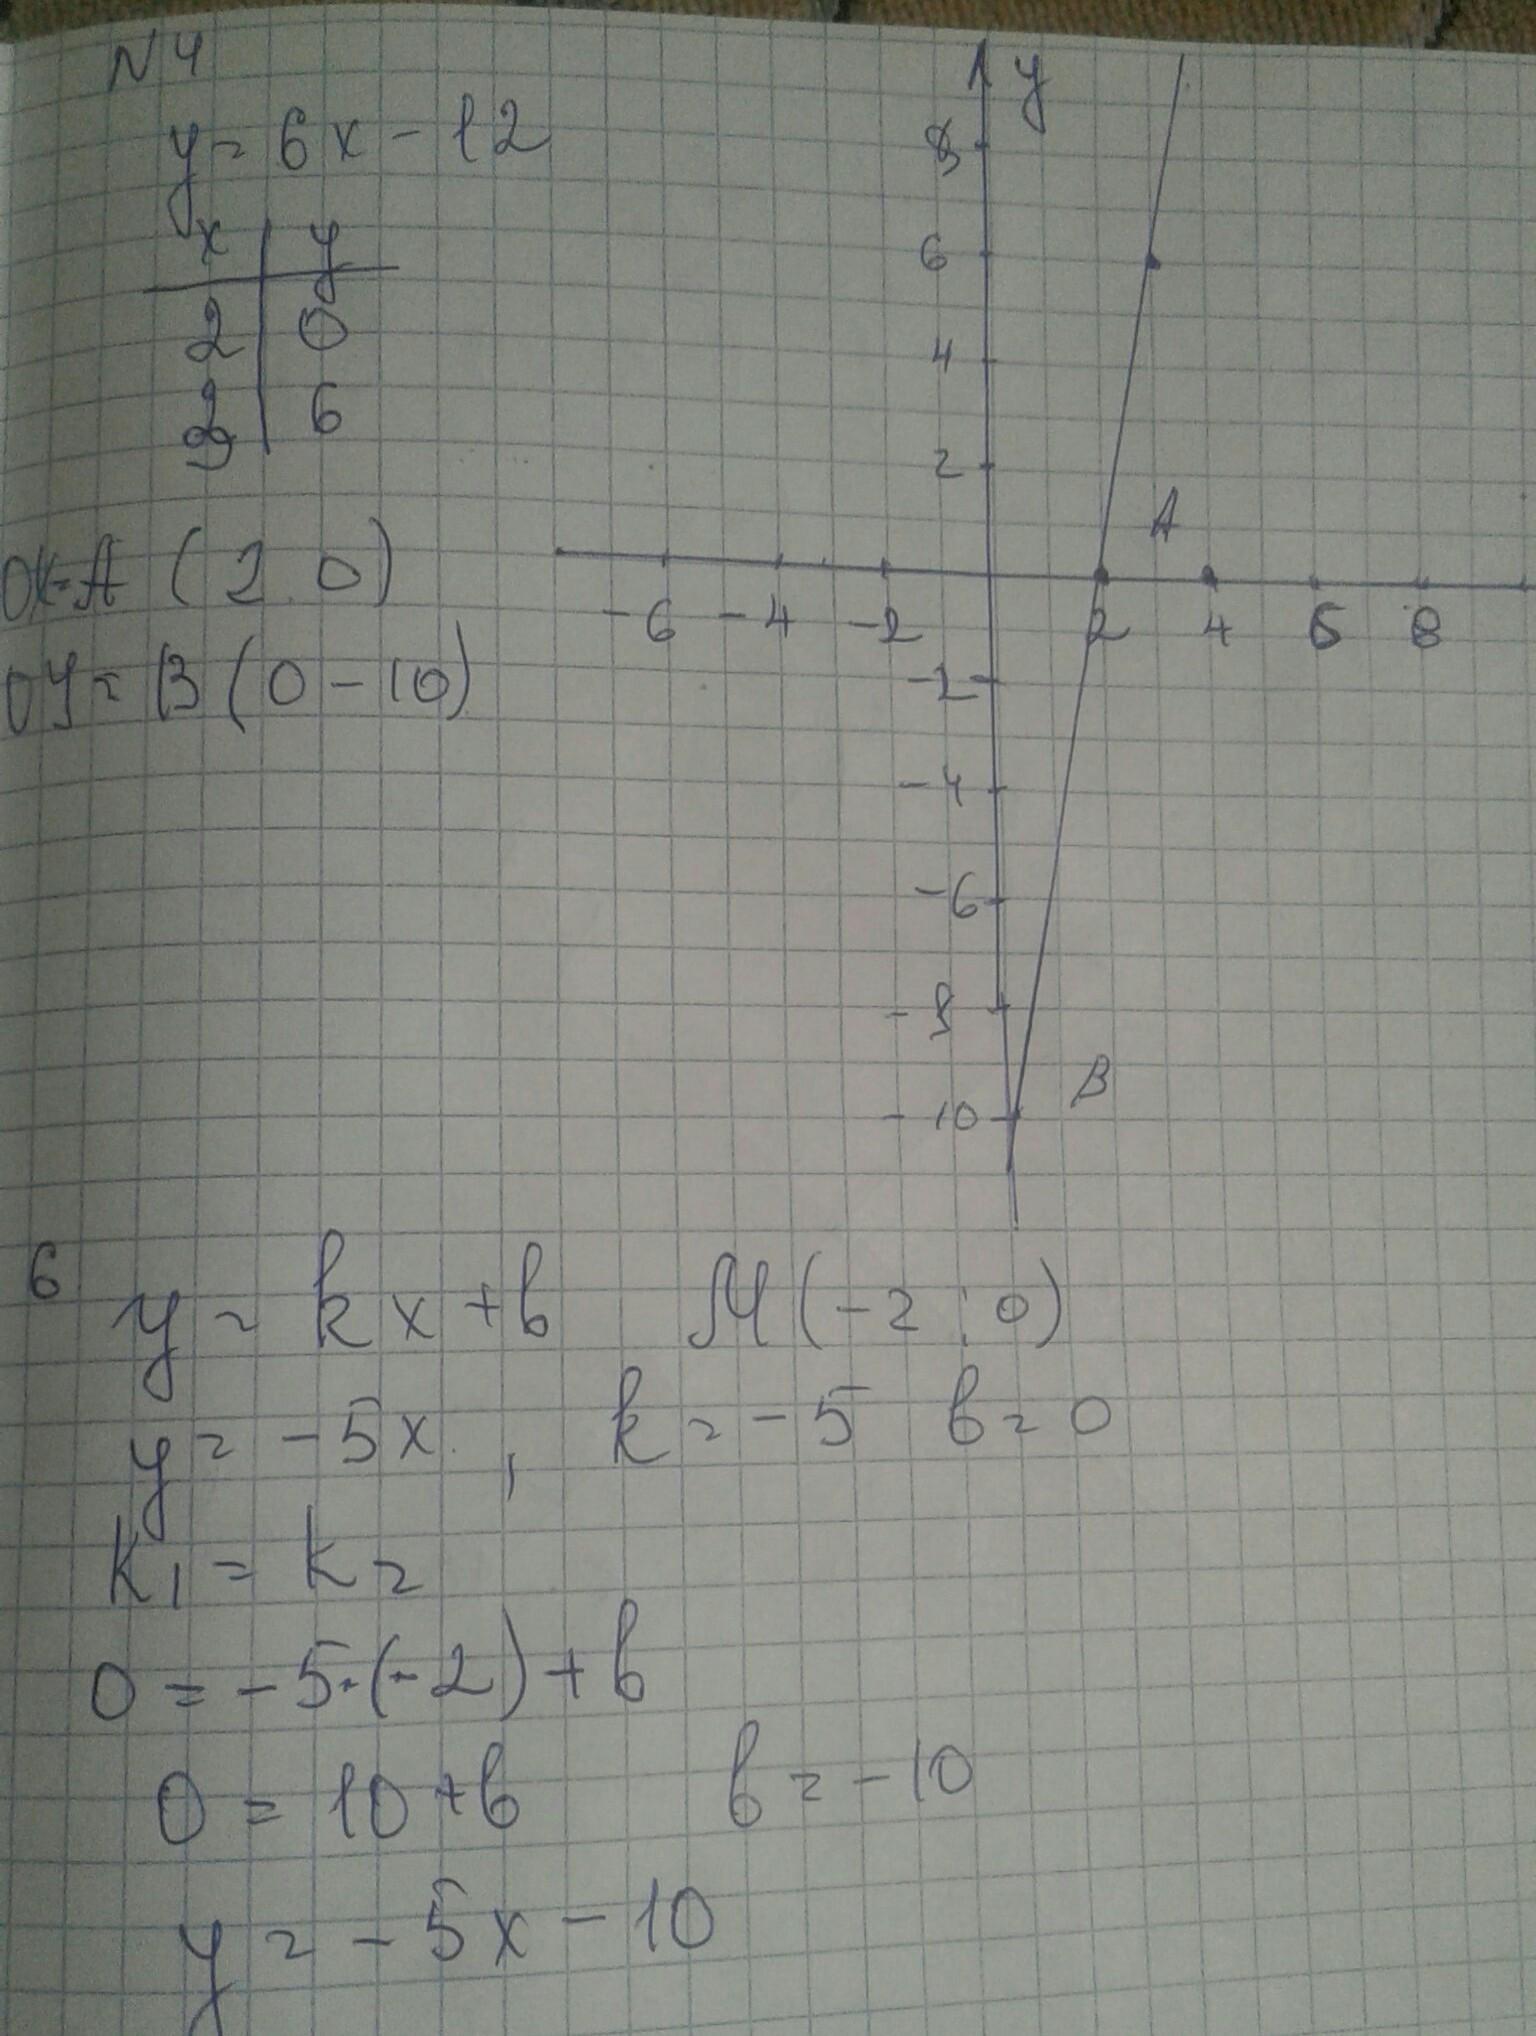 N 4
y = 6x - 12
x | y
2 | 0
3 | 6
OX = A (2 0)
OY = B (0 - 10)
y
8
6
4
2
A
-6 -4 -2 2 4 6 8
-2
-4
-6
-8
B
-10
6 y = kx + b M (-2 ; 0)
y = -5x , k = -5 b = 0
k1 = k2
0 = -5·(-2) + b
0 = 10 + b b = -10
y = -5x - 10